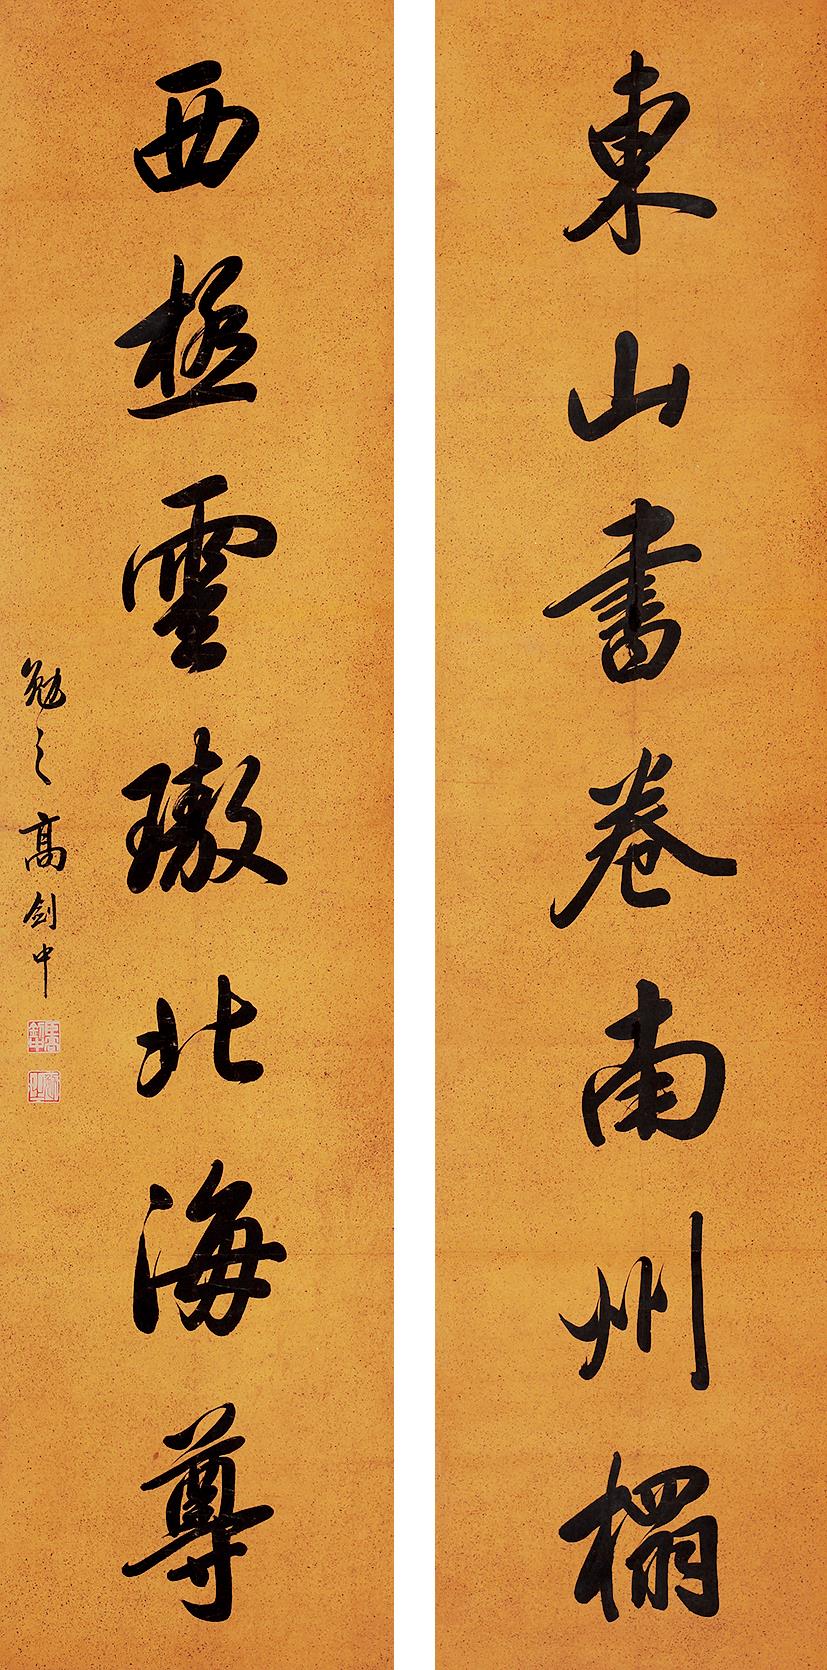 東山書卷南州榻
西極雲璈北海尊
勉之高劍中